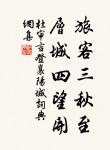 旅客三秋至
層城四望開
杜審言登襄陽城詞典
網集